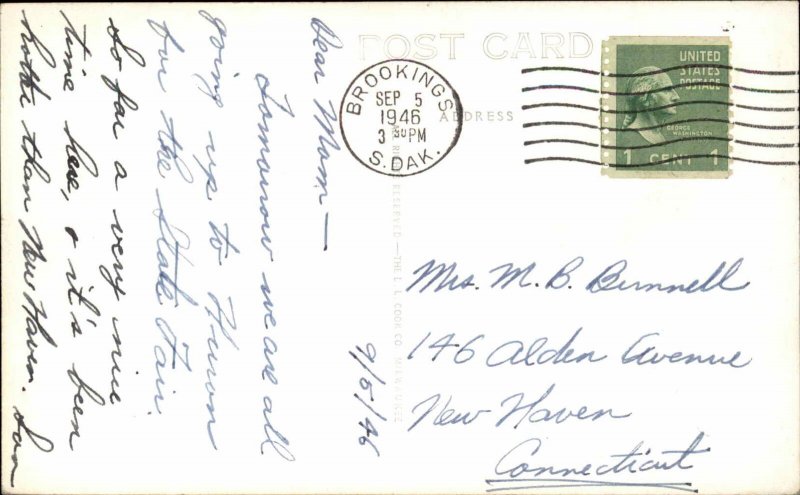 POST CARD
ADDRESS
BROOKINGS
SEP 5
1946
3 30 PM
S. DAK.
UNITED
STATES
POSTAGE
GEORGE
WASHINGTON
1 CENT 1
RESERVED — THE L. L. COOK CO. MILWAUKEE
Dear Mom —
Tomorrow we are all
going up to Huron
for the State Fair.
So far a very nice
time here, & it's been
hotter than New Haven.
9/5/46
Mrs. M. B. Bunnell
146 Alden Avenue
New Haven
Connecticut